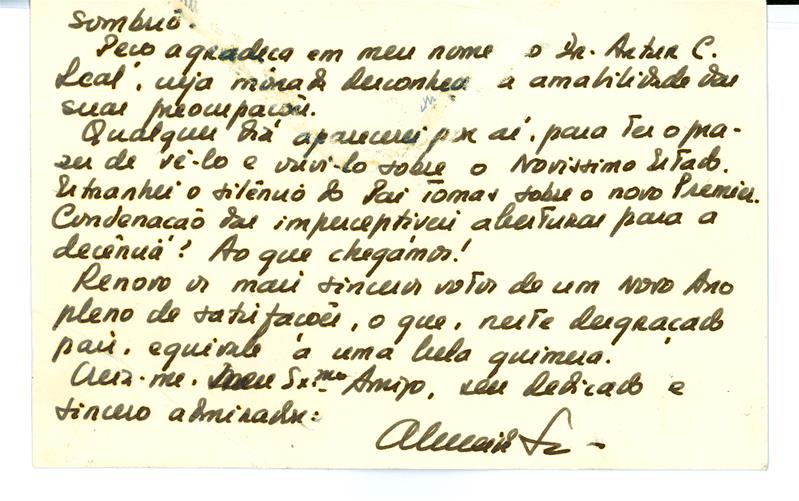 sombrio.
Peço agradeça em meu nome o Dr. Artur C.
Leal, cuja morada desconheço a amabilidade das
suas preocupações.
Qualquer dia aparecerei por aí, para ter o pra-
zer de vê-lo e ouvi-lo sobre o Novissimo Estado.
Estranhei o silêncio do Pai Tomas sobre o novo Premier.
Condenação das imperceptíveis aberturas para a
decência? Ao que chegámos!
Renovo os mais sinceros votos de um Novo Ano
pleno de satisfações, o que, neste desgraçado
país, equivale à uma bela quimera.
Creia-me, Ex.mo Amigo, seu dedicado e
sincero admirador: